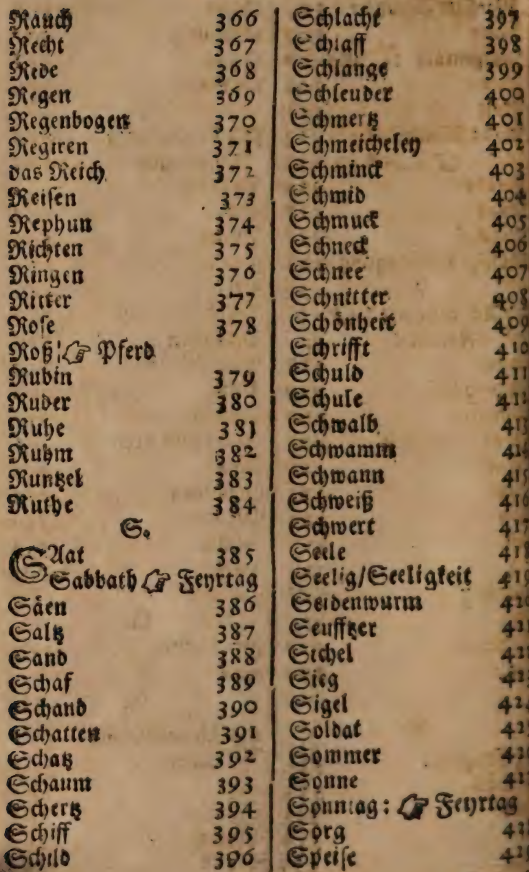 Rauch 366
Recht 367
Rede 368
Regen 369
Regenbogen 370
Regiren 371
das Reich 372
Reisen 373
Rephun 374
Richten 375
Ringen 376
Ritter 377
Rose 378
Roß ☞ Pferd
Rubin 379
Ruder 380
Ruhe 381
Ruhm 382
Runtzel 383
Ruthe 384
S.
SAat 385
Sabbath ☞ Feyrtag
Säen 386
Saltz 387
Sand 388
Schaf 389
Schand 390
Schatten 391
Schatz 392
Schaum 393
Schertz 394
Schiff 395
Schild 396
Schlacht 397
Schlaff 398
Schlange 399
Schleuder 400
Schmertz 401
Schmeicheley 402
Schminck 403
Schmid 404
Schmuck 405
Schneck 406
Schnee 407
Schnitter 408
Schönheit 409
Schrifft 410
Schuld 411
Schule
Schwalb
Schwamm
Schwann
Schweiß
Schwert
Seele
Seelig/Seeligkeit
Seidenwurm
Seufftzer
Sichel
Sieg
Sigel
Soldat
Sommer
Sonne
Sonntag: ☞ Feyrtag
Sorg
Speise